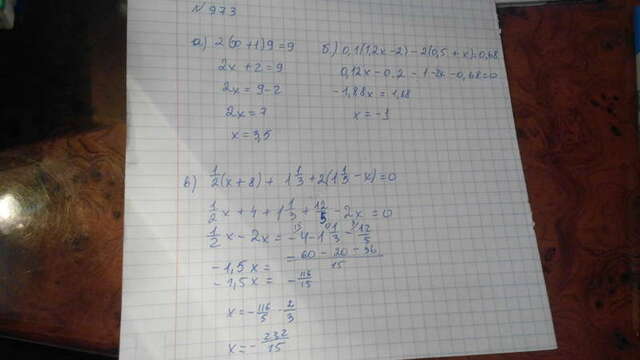 № 973
а) 2(x+1)9=9
2x+2=9
2x=9-2
2x=7
x=3,5
б) 0,1(1,2x-2)-2(0,5+x)=0,68
0,12x-0,2-1-2x-0,68=0
-1,88x=1,88
x=-1
в) 1/2(x+8)+1 1/3+2(1 1/3-x)=0
1/2x+4+1 1/3+12/5-2x=0
1/2x-2x=-4-1 1/3-12/5
-1,5x= =60-20-36/15
-1,5x= -116/15
x=-116/5·2/3
x=-232/15